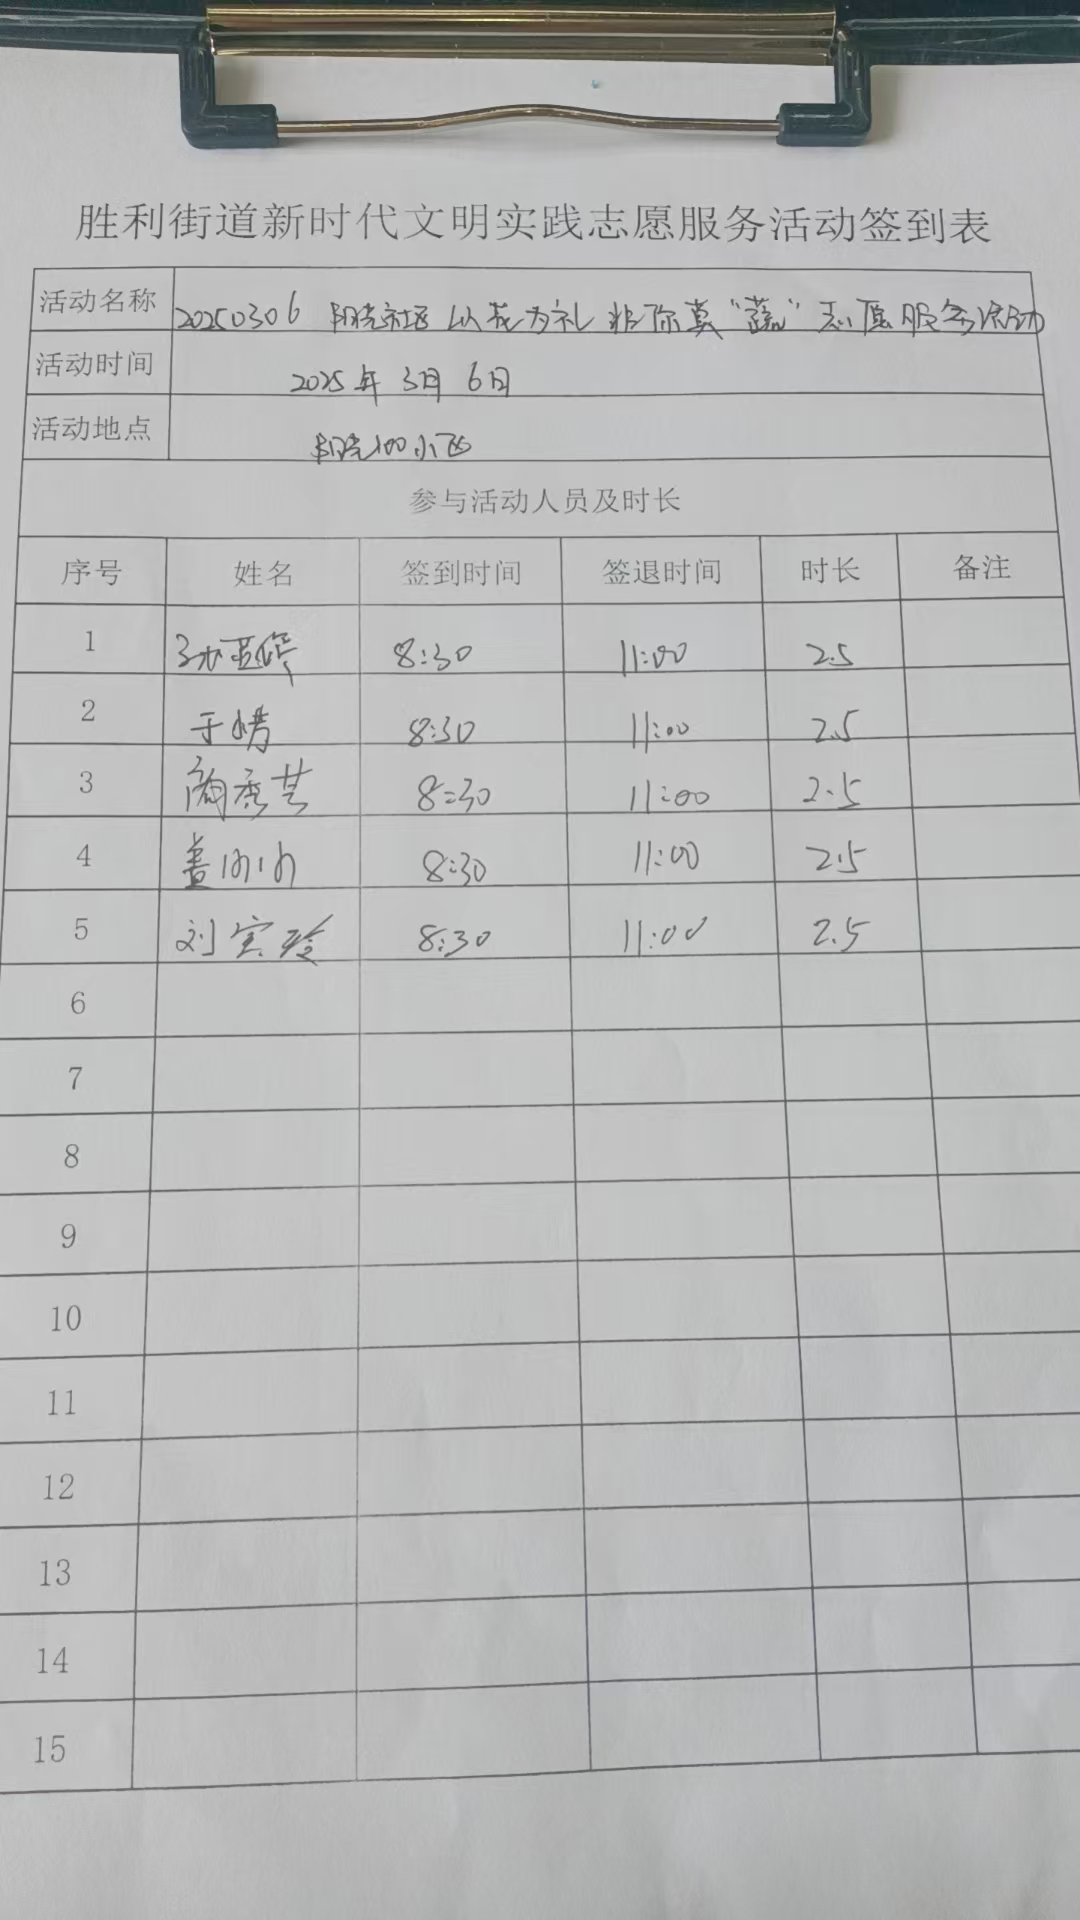 胜利街道新时代文明实践志愿服务活动签到表
活动名称 20250306 阳光社区 以花为礼 非你莫“蔬”志愿服务活动
活动时间 2025年3月6日
活动地点 阳光100小区
参与活动人员及时长
序号 姓名 签到时间 签退时间 时长 备注
1 8:30 11:00 2.5
2 于婧 8:30 11:00 2.5
3 8:30 11:00 2.5
4 8:30 11:00 2.5
5 刘宝玲 8:30 11:00 2.5
6
7
8
9
10
11
12
13
14
15